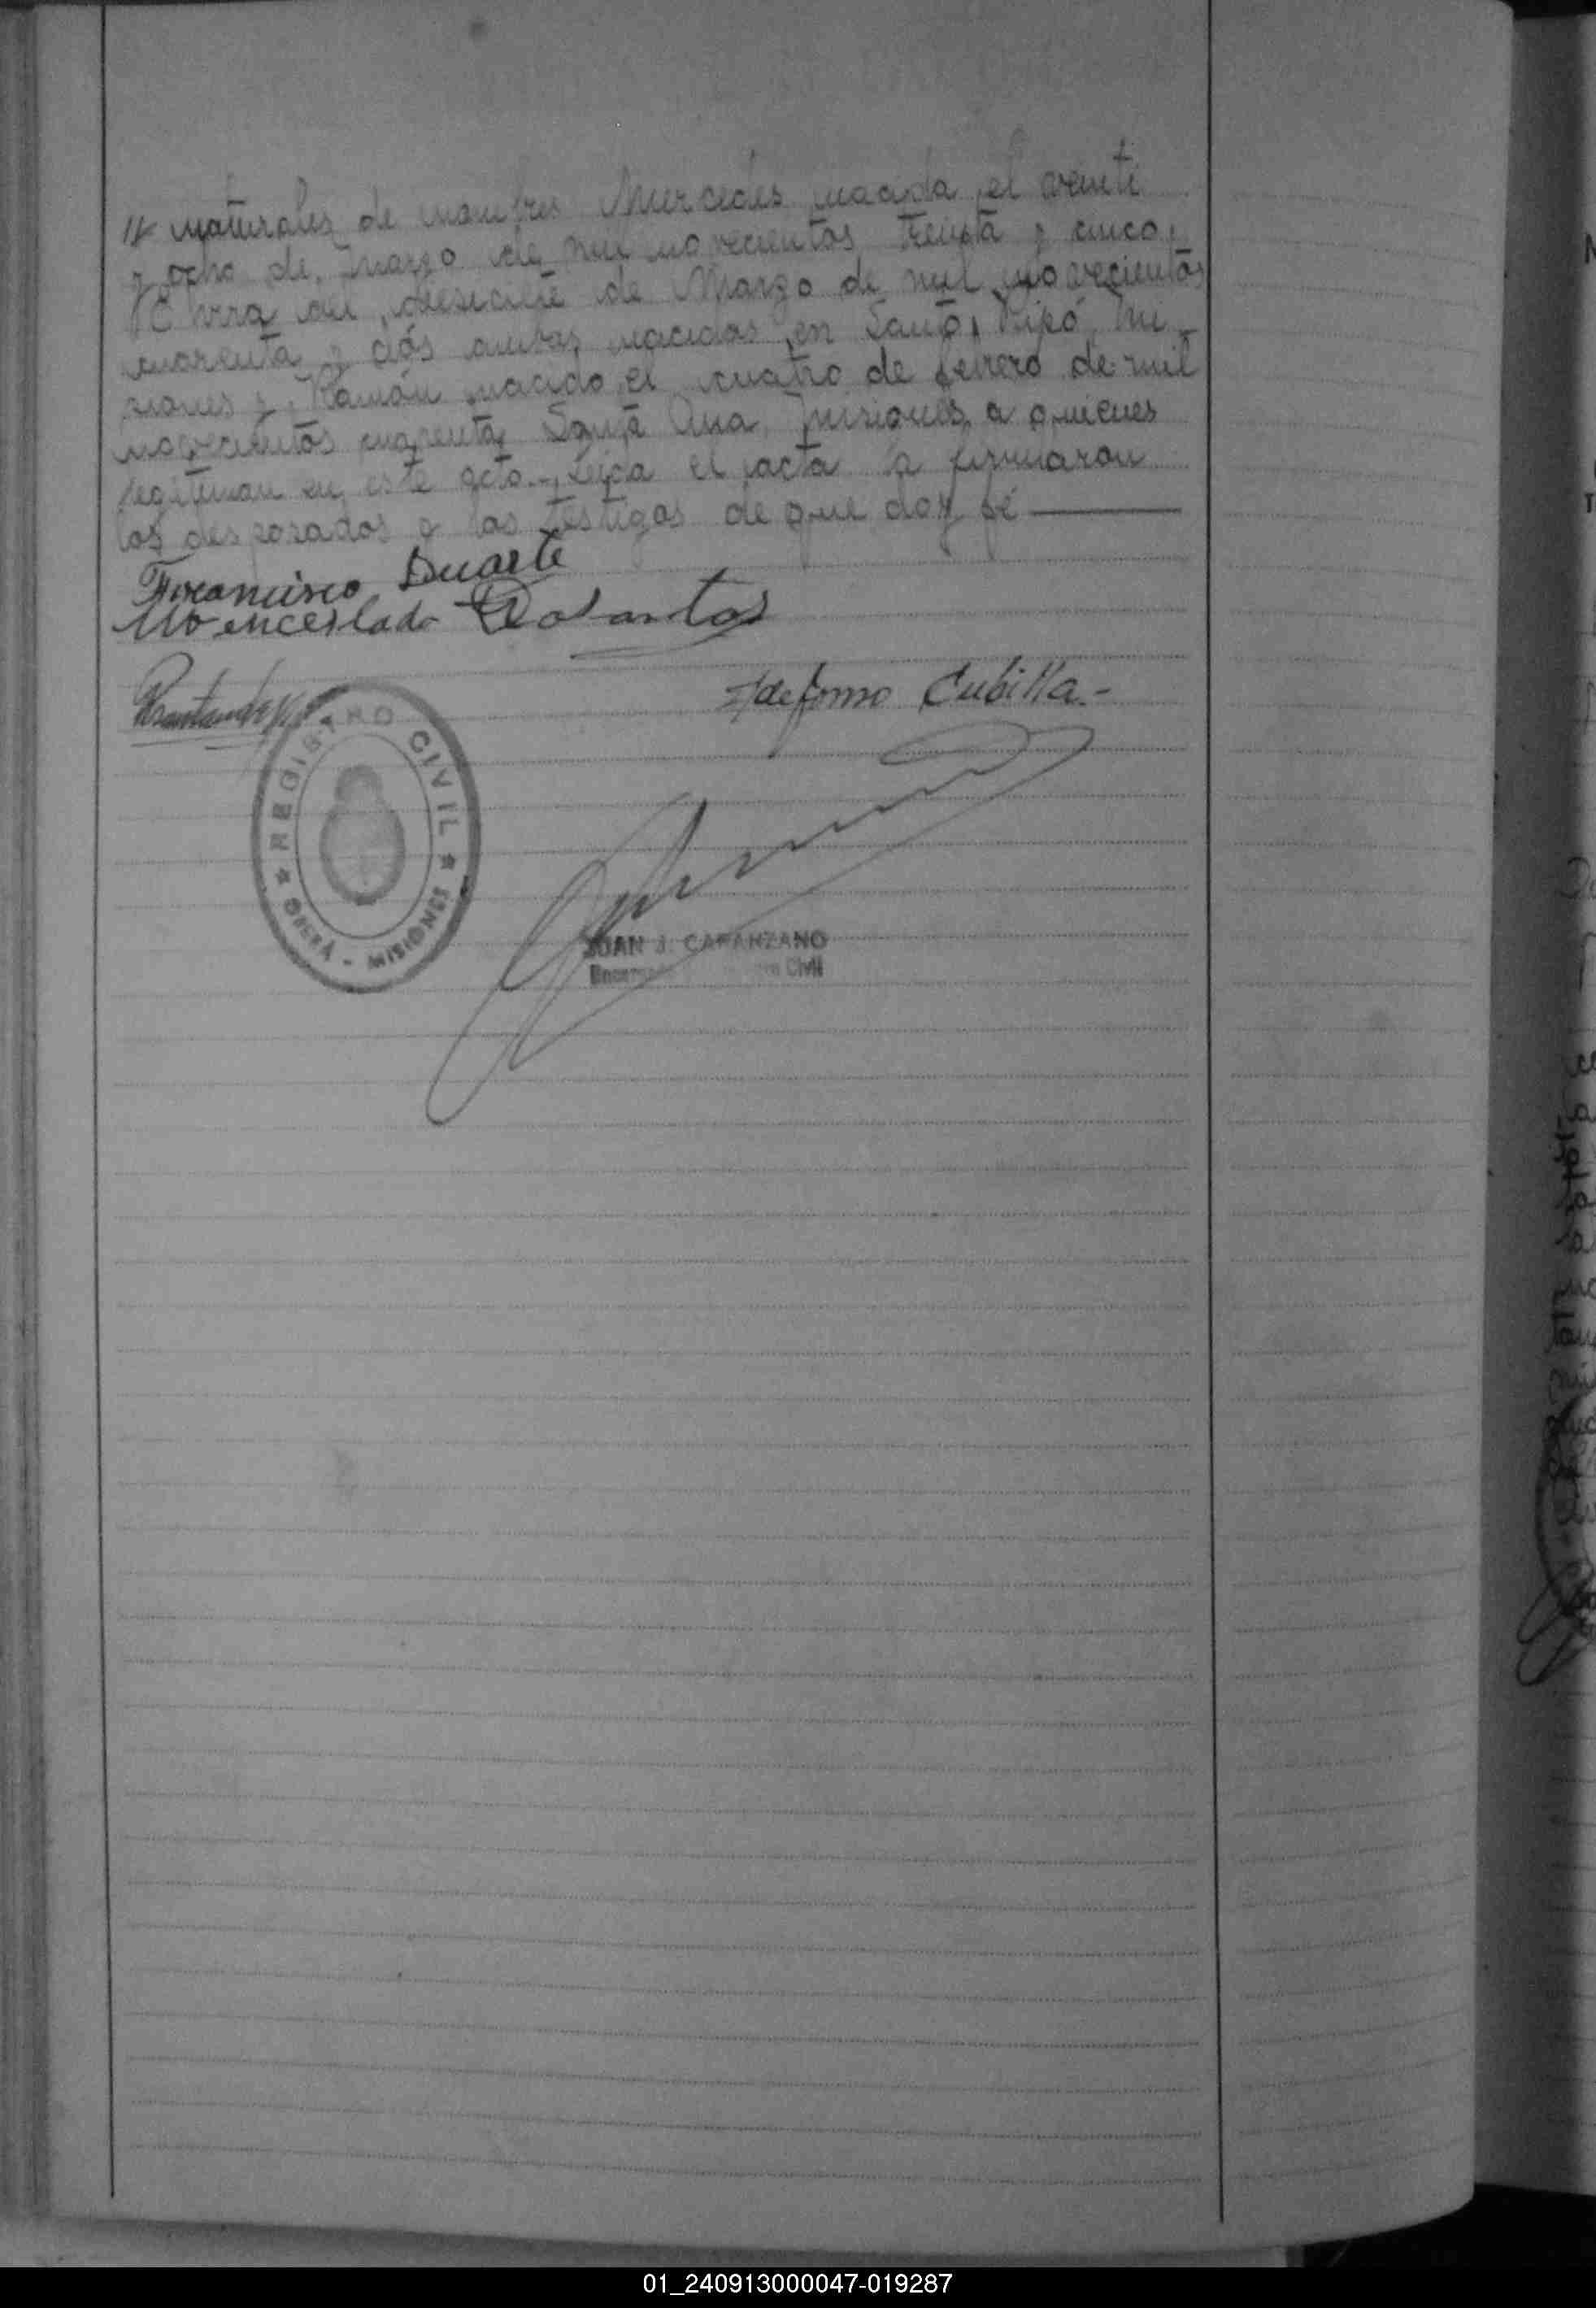 // naturales de nombres Mercedes nacida el veinti
y ocho de Marzo de mil novecientos treinta y cinco,
el diesisiete de Marzo de mil novecientos
cuarenta y dós ambas nacidas en Santo Pipó, Mi-
siones y Ramón nacido el cuatro de febrero de mil
novecientos cuarenta, Santa Ana, Misiones, a quienes
legitiman en este acto.- Leida el acta la firmaron
los desposados y los testigos de que doy fé
Francisco Duarte
Wenceslado
Ildefonso Cubilla.-
REGISTRO CIVIL
OBERÁ - MISIONES
JUAN J. CAPANZANO
Civil
01_240913000047-019287